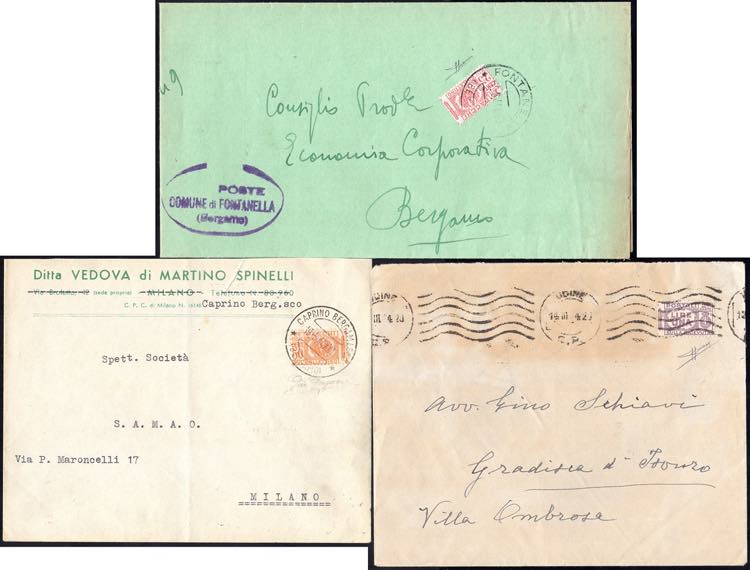 Consiglio Prov.le
Economia Corporativa
Bergamo
POSTE
COMUNE di FONTANELLA
(Bergamo)
Ditta VEDOVA di MARTINO SPINELLI
(sede propria) - MILANO - Telefono N. 80-960
C. P. C. di Milano N.
Caprino Berg.sco
CAPRINO BERGAMASCO
Spett. Società
S. A. M. A. O.
Via P. Maroncelli 17
MILANO
UDINE
UDINE
C.P.
LIRE
Avv. Gino Schiavi
Gradisca d'Isonzo
Villa Ombrosa